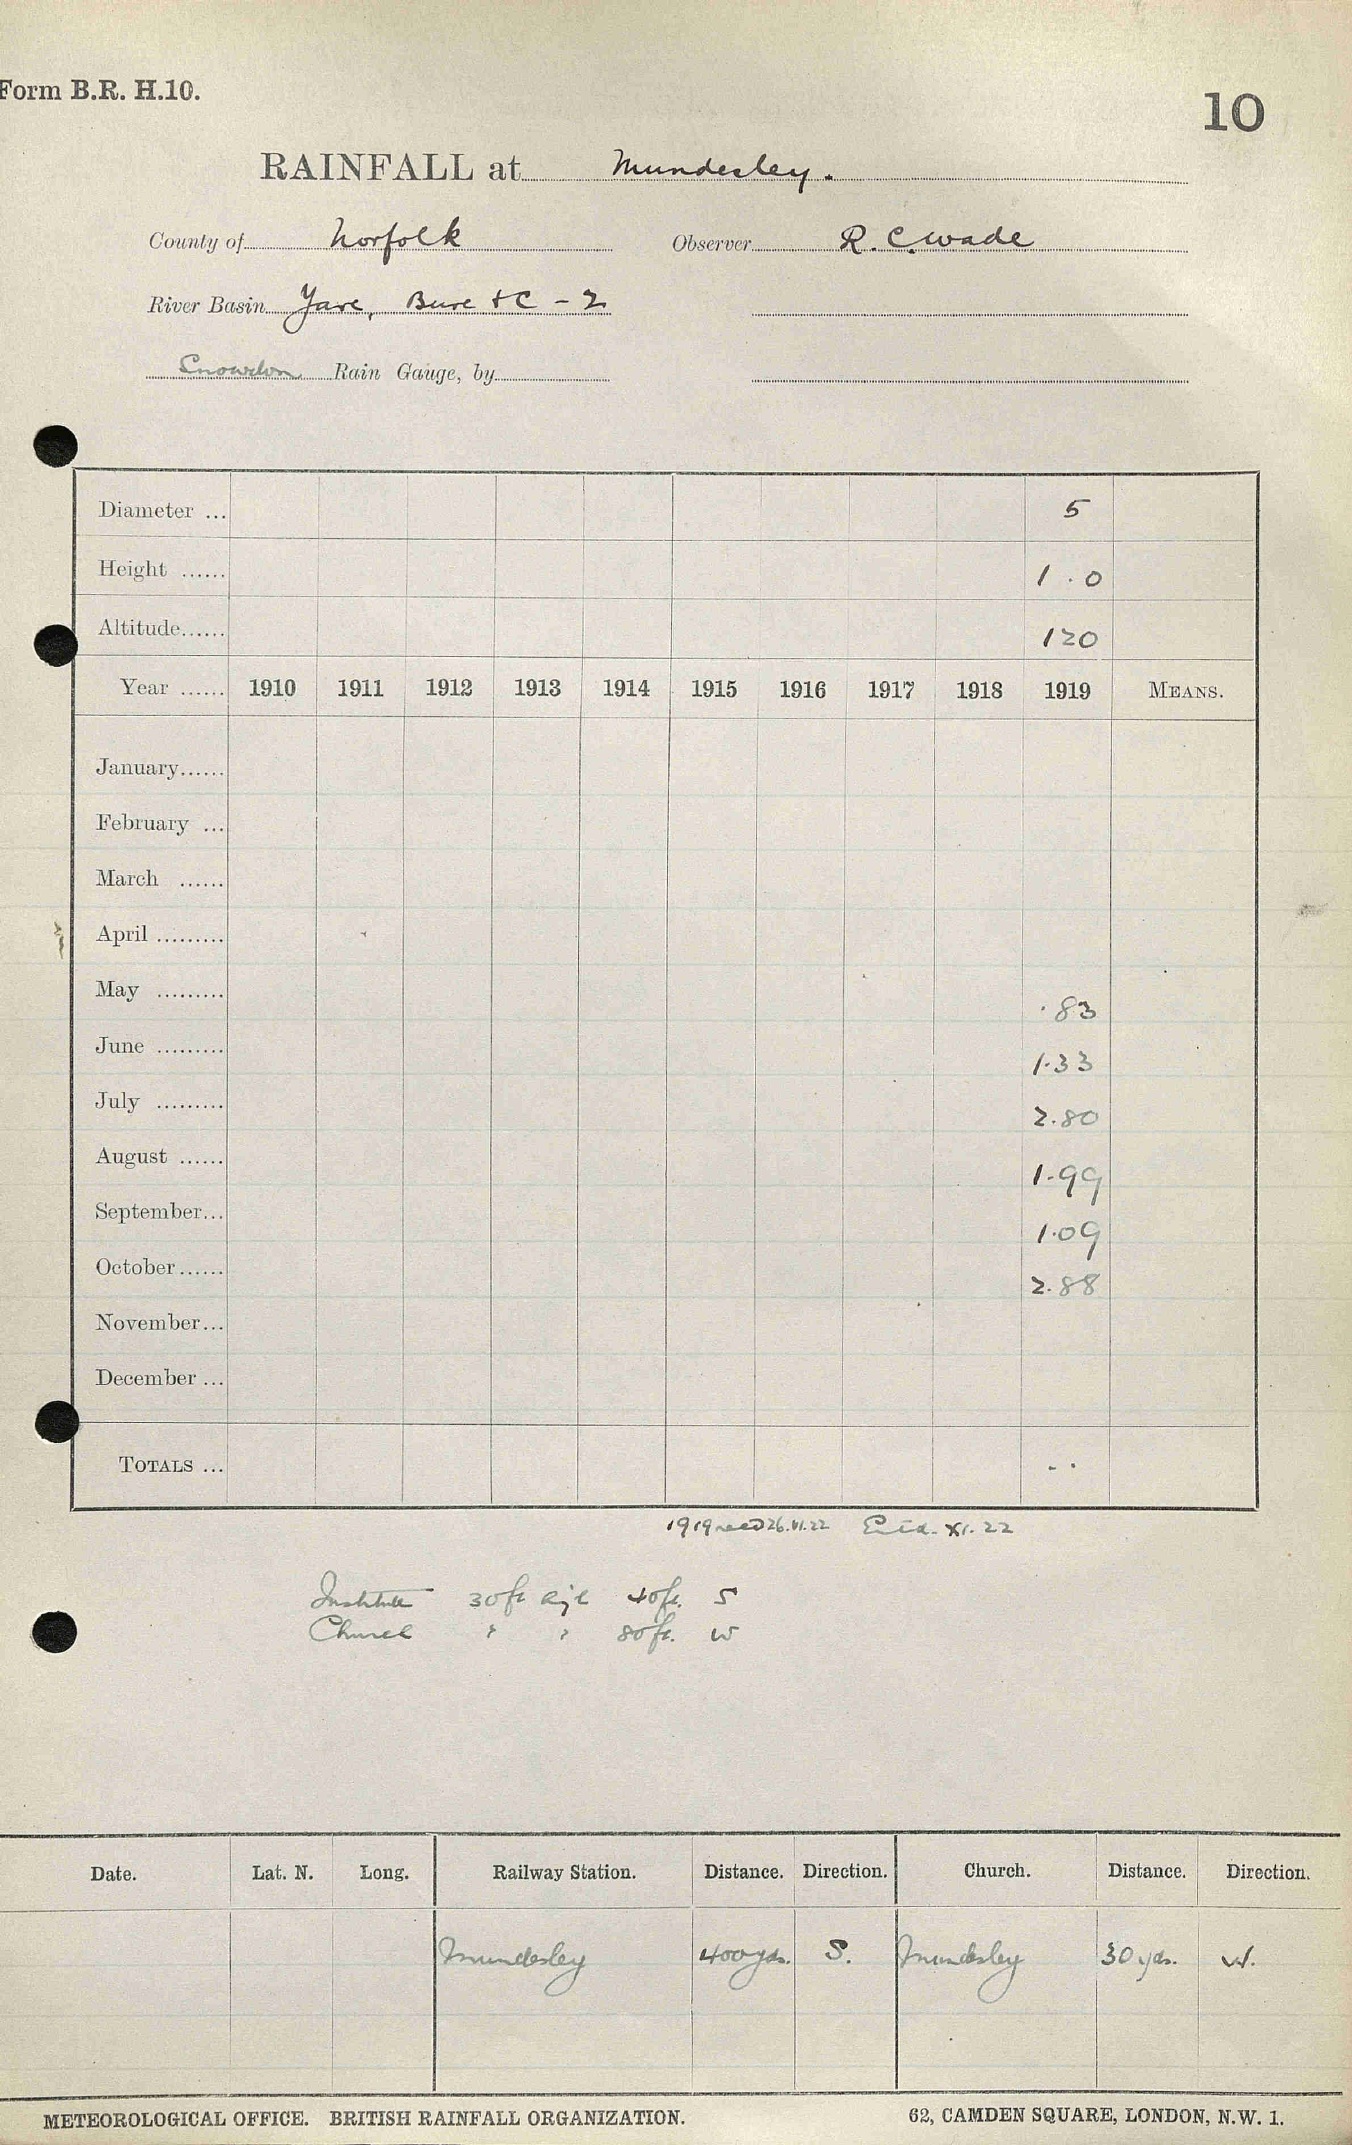 Form B.R. H.10.
10
RAINFALL at Mundesley.
County of Norfolk Observer R. C. Wade
River Basin Yare, Bure &c - 2
Snowdon Rain Gauge, by
Diameter ... 5
Height ...... 1.0
Altitude...... 120
Year ...... 1910 1911 1912 1913 1914 1915 1916 1917 1918 1919 MEANS.
January......
February ...
March ......
April .........
May ......... .83
June ......... 1.33
July ......... 2.80
August ...... 1.99
September... 1.09
October...... 2.88
November...
December ...
TOTALS ... - .
1919 recd 26.VI.22 XI.22
Institute 30ft 40ft. S
Church " " 80ft. W
Date. Lat. N. Long. Railway Station. Distance. Direction. Church. Distance. Direction.
Mundesley 400 yds. S. Mundesley 30 yds. W.
METEOROLOGICAL OFFICE. BRITISH RAINFALL ORGANIZATION. 62, CAMDEN SQUARE, LONDON, N.W. 1.